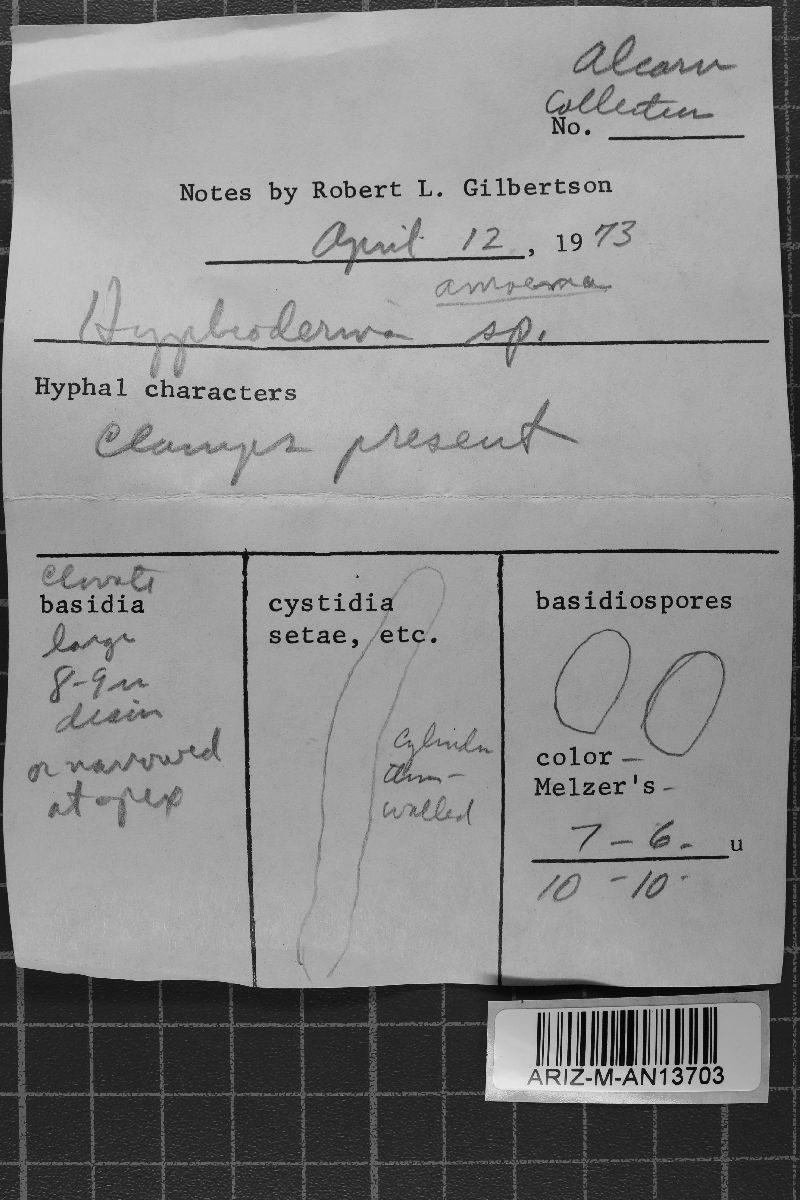 Alcorn
Collection
No.
Notes by Robert L. Gilbertson
April 12, 1973
amoena
Hyphoderma sp.
Hyphal characters
Clamps present
clavate
basidia
large
8-9 u
diam
or narrowed
at apex
cystidia
setae, etc.
Cylindr
thin-
walled
basidiospores
color -
Melzer's -
7 - 6. u
10 - 10.
ARIZ-M-AN13703